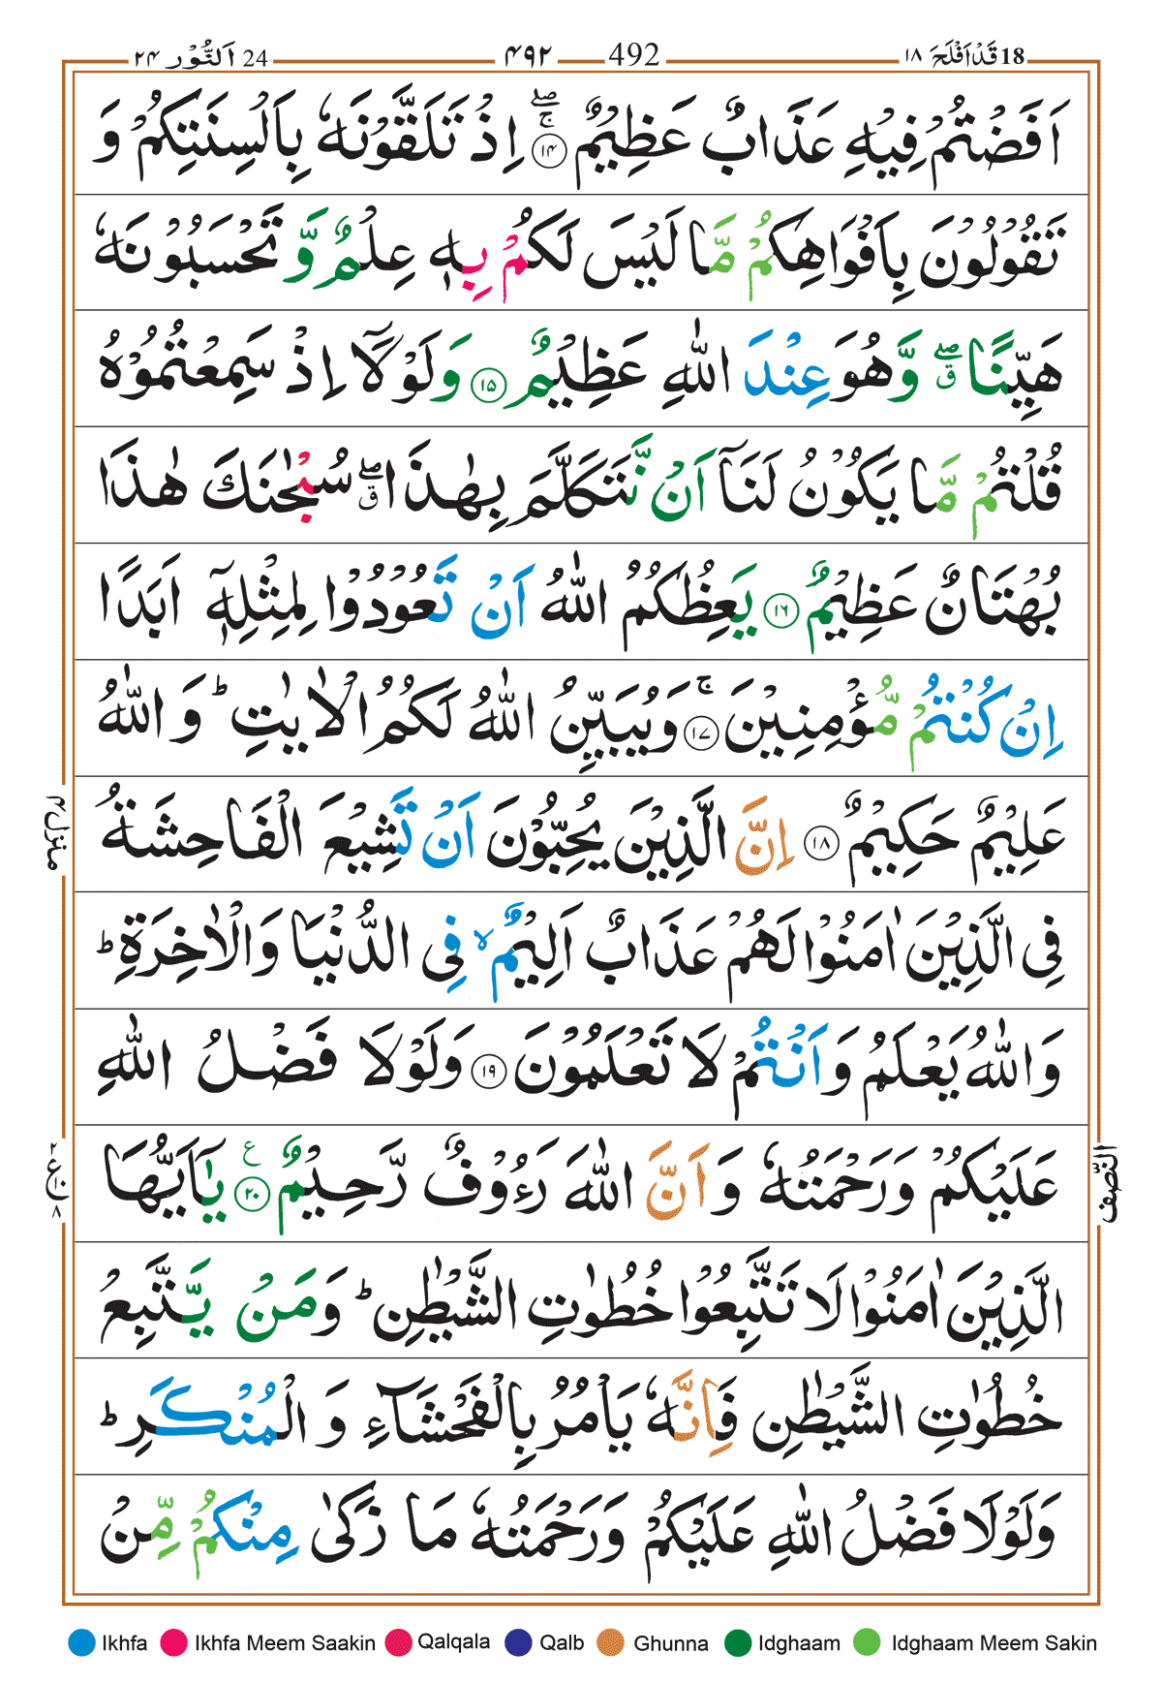 24 اَلنُّوْر ٢٤
٤٩٢ 492
18 قَدْ اَفْلَحَ ١٨
اَفَضْتُمْ فِيْهِ عَذَابٌ عَظِيْمٌ ۚۖ ۝١٤ اِذْ تَلَقَّوْنَهٗ بِاَلْسِنَتِكُمْ وَ
تَقُوْلُوْنَ بِاَفْوَاهِكُمْ مَّا لَيْسَ لَكُمْ بِهٖ عِلْمٌ وَّ تَحْسَبُوْنَهٗ
هَيِّنًا ۖۗ وَّ هُوَ عِنْدَ اللّٰهِ عَظِيْمٌ ۝١٥ وَلَوْلَاۤ اِذْ سَمِعْتُمُوْهُ
قُلْتُمْ مَّا يَكُوْنُ لَنَاۤ اَنْ نَّتَكَلَّمَ بِهٰذَا ۖۗ سُبْحٰنَكَ هٰذَا
بُهْتَانٌ عَظِيْمٌ ۝١٦ يَعِظُكُمُ اللّٰهُ اَنْ تَعُوْدُوْا لِمِثْلِهٖۤ اَبَدًا
اِنْ كُنْتُمْ مُّؤْمِنِيْنَ ۚ ۝١٧ وَيُبَيِّنُ اللّٰهُ لَكُمُ الْاٰيٰتِ ؕ وَ اللّٰهُ
عَلِيْمٌ حَكِيْمٌ ۝١٨ اِنَّ الَّذِيْنَ يُحِبُّوْنَ اَنْ تَشِيْعَ الْفَاحِشَةُ
فِى الَّذِيْنَ اٰمَنُوْا لَهُمْ عَذَابٌ اَلِيْمٌ ۙ فِى الدُّنْيَا وَالْاٰخِرَةِ ؕ
وَاللّٰهُ يَعْلَمُ وَ اَنْتُمْ لَا تَعْلَمُوْنَ ۝١٩ وَلَوْلَا فَضْلُ اللّٰهِ
عَلَيْكُمْ وَرَحْمَتُهٗ وَ اَنَّ اللّٰهَ رَءُوْفٌ رَّحِيْمٌ ۝٢٠ ع يٰۤاَيُّهَا
الَّذِيْنَ اٰمَنُوْا لَا تَتَّبِعُوْا خُطُوٰتِ الشَّيْطٰنِ ؕ وَمَنْ يَّتَّبِعْ
خُطُوٰتِ الشَّيْطٰنِ فَاِنَّهٗ يَاْمُرُ بِالْفَحْشَآءِ وَ الْمُنْكَرِ ؕ
وَلَوْلَا فَضْلُ اللّٰهِ عَلَيْكُمْ وَرَحْمَتُهٗ مَا زَكٰى مِنْكُمْ مِّنْ
منزل ٤
النّصف
Ikhfa Ikhfa Meem Saakin Qalqala Qalb Ghunna Idghaam Idghaam Meem Sakin